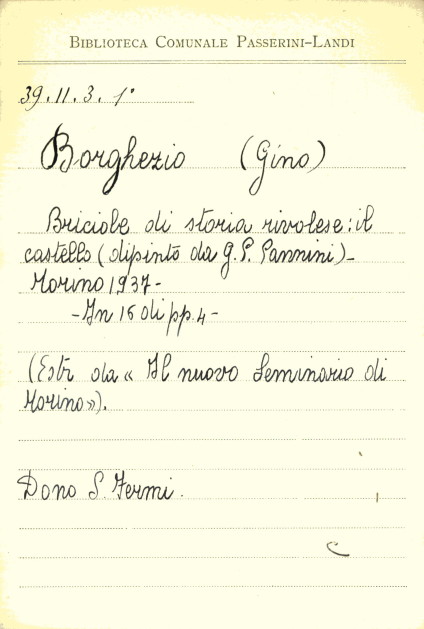 BIBLIOTECA COMUNALE PASSERINI-LANDI
39.11.3.1°
Borghezio (Gino)
Briciole di storia rivolese: il
castello (dipinto da G. P. Pannini)-
Torino 1937-
-In 16 di pp. 4-
(Estr da « Il nuovo Seminario di
Torino»).
Dono S. Fermi.